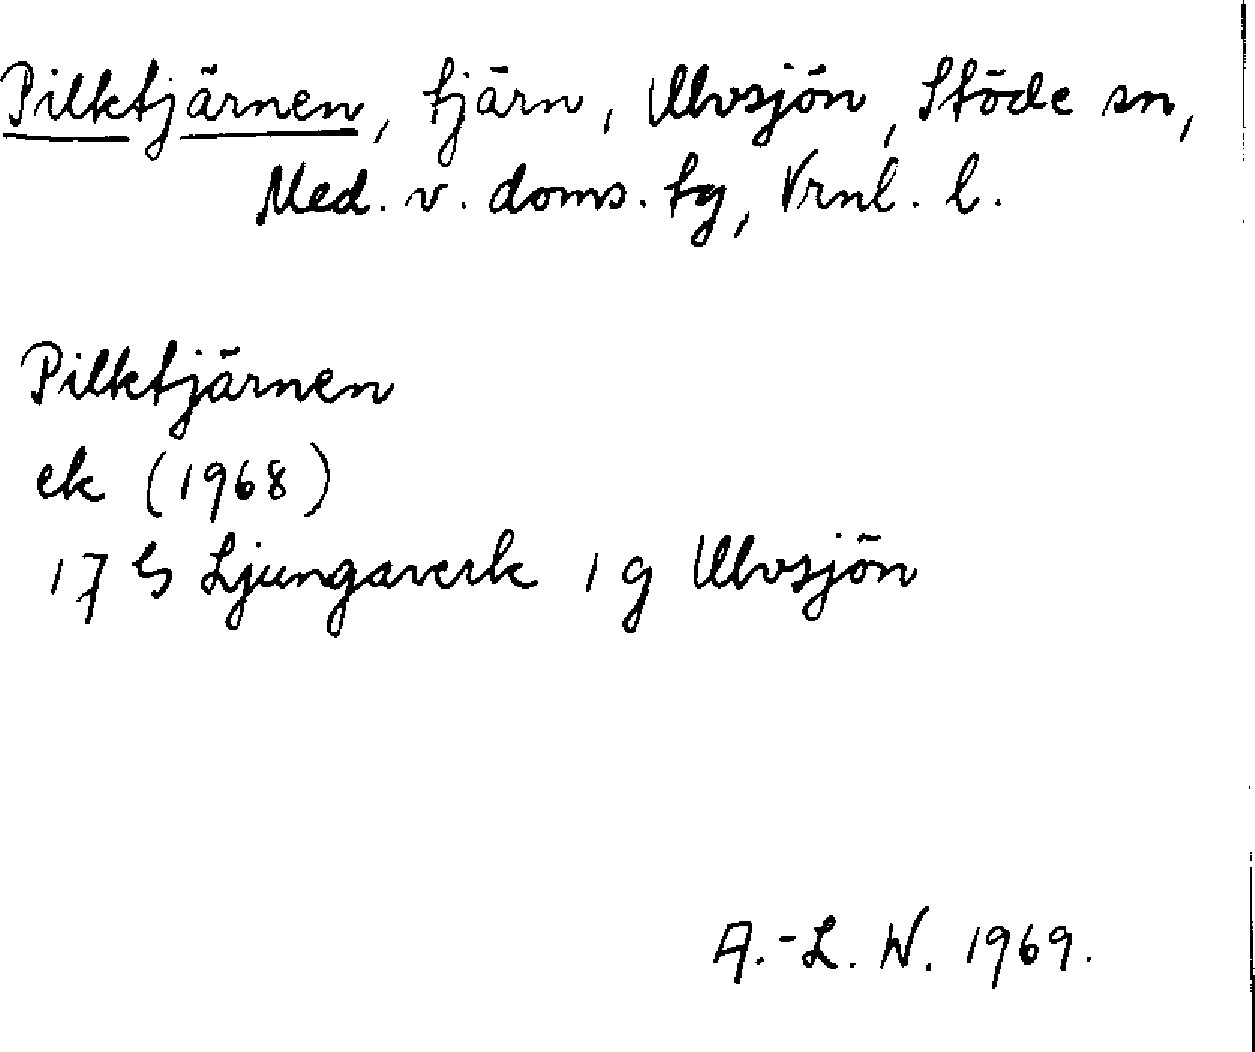 Pilktjärnen, tjärn, Ulvsjön, Stöde sn,
Med. v. doms. tg, Vrnl. l.
Pilktjärnen
ek (1968)
17 G Ljungaverk 1 g Ulvsjön
A.-L. W. 1969.